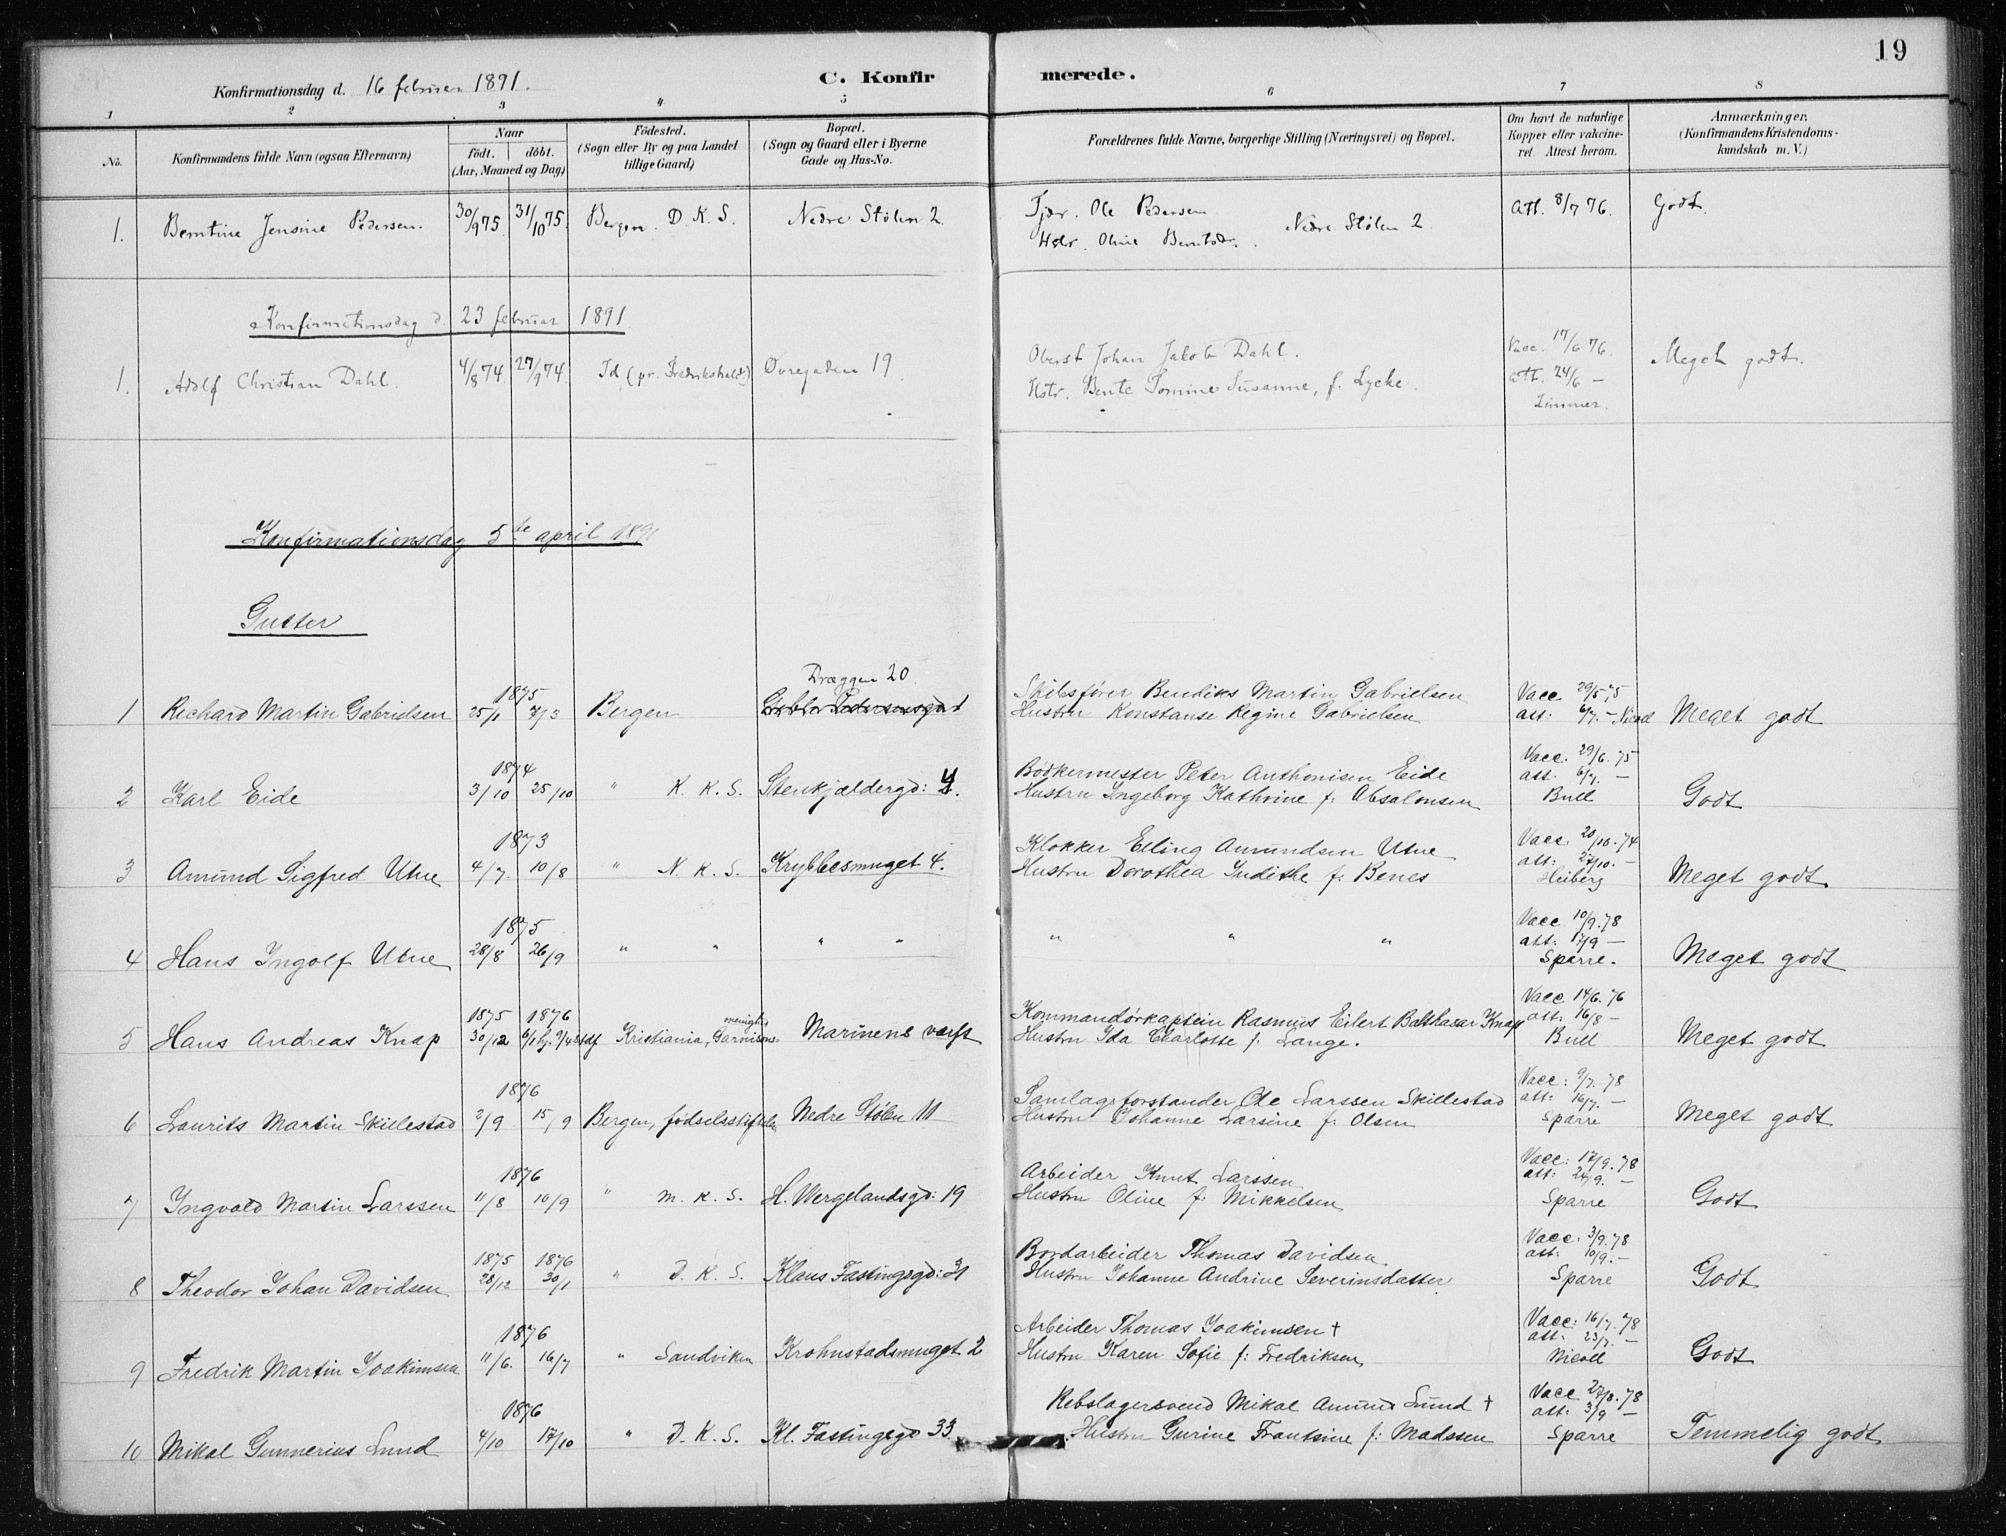 19
Konfirmationsdag d. 16 februar 1891. C. Konfirmerede.
1 2 3 4 5 6 7 8
No. Konfirmandens fulde Navn (ogsaa Efternavn) Naar födt. döbt. (Aar, Maaned og Dag) Födested. (Sogn eller By og paa Landet tillige Gaard) Bopæl. (Sogn og Gaard eller i Byerne Gade og Hus-No. Forældrenes fulde Navne, borgerlige Stilling (Næringsvei) og Bopæl. Om havt de naturlige Kopper eller vakcineret. Attest herom. Anmærkninger. (Konfirmandens Kristendomskundskab m. V.)
1. Berntine Jensine Pedersen. 30/9 75. 31/10 75. Bergen. D. K. S. Nedre Stølen 2 Tjdr. Ole Pedersen Att. 8/7 76. Godt.
Hstr. Oline Berntsdr. Nedre Stølen 2.
Konfirmationsdag d. 23 februar 1891
1. Adolf Christian Dahl. 4/8 74. 27/9 74 Id (pr. Fredrikshald) Øvregaden 19 Oberst Johan Jakob Dahl. Vacc. 17/6 76. Meget godt.
Hstr. Bente Tomine Susanne, f. Lycke. att. 24/6 —
Zimmer.
Konfirmationsdag 5te april 1891
Gutter
1 Richard Martin Gabrielsen 1875 25/1 7/3 Bergen Dræggen 20 Skibsfører Bendiks Martin Gabrielsen Vacc 29/5 75 Meget godt
Hustru Konstanse Regine Gabrielsen att: 6/7. — Nicol
2 Karl Eide 1874 3/10 25/10 " K. K. S. Stenkjældergd: 4. Bødkermester Peter Anthonisen Eide Vacc. 29/6. 75 Godt
Hustru Ingeborg Kathrine f: Absalonsen att. 6/7. —
Bull
3 Amund Sigfred Utne 1873 4/7. 10/8 " N. K. S. Krybbesmuget 4. Klokker Elling Amundsen Utne Vacc. 20/10. 74 Meget godt
Hustru Dorothea Judithe f: Benes att: 27/10. —
Heiberg
4 Hans Ingolf Utne 1875 28/8 26/9 " " " " " " " Vacc 10/9. 78 Meget godt
att: 17/9 —
Sparre.
5 Hans Andreas Knap 1875 30/12 1876 6/1 hj. 9/4 stdf Kristiania, Garnisonsmenighed Marinens værft Kommandørkaptein Rasmus Eilert Balthazar Knap Vacc 14/6. 76 Meget godt
Hustru Ida Charlotte f: Lange. att: 16/8 —
Bull
6 Laurits Martin Skillestad 1876 2/9 15/9 Bergen, fødselsstiftelsen Nedre Stølen 11 Samlagsforstander Ole Larssen Skillestad Vacc: 9/7. 78 Meget godt
Hustru Johanne Larsine f: Olsen att: 16/7. —
Sparre
7 Ingvald Martin Larssen 1876 11/8 10/9 " M. K. S. H. Wergelandsgd: 19 Arbeider Knut Larssen Vacc: 17/9. 78 Godt
Hustru Oline f: Mikkelsen att: 24/9. —
Sparre
8 Theodor Johan Davidsen 1875 28/12 1876 30/1 " D. K. S. Klaus Fastingsgd: 31 Bordarbeider Thomas Davidsen Vacc: 3/9. 78 Godt
Hustru Johanne Andrine Severinsdatter att: 10/9. —
Sparre
9 Fredrik Martin Joakimsen 1876 11/6. 16/7 " Sandviken Krohnstadsmuget 2 Arbeider Thomas Joakimsen † Vacc: 16/7. 78 Godt
Hustru Karen Sofie f: Fredriksen att: 23/7. —
Nicoll
10 Mikal Gunnerius Lund 1876 4/10 17/10 " D. K. S. Kl. Fastingsgd 33 Rebslagersvend Mikal Amund Lund † Vacc 27/8. 78 Temmelig godt
Hustru Gurine Frantsine f: Madssen att: 3/9 —
Sparre